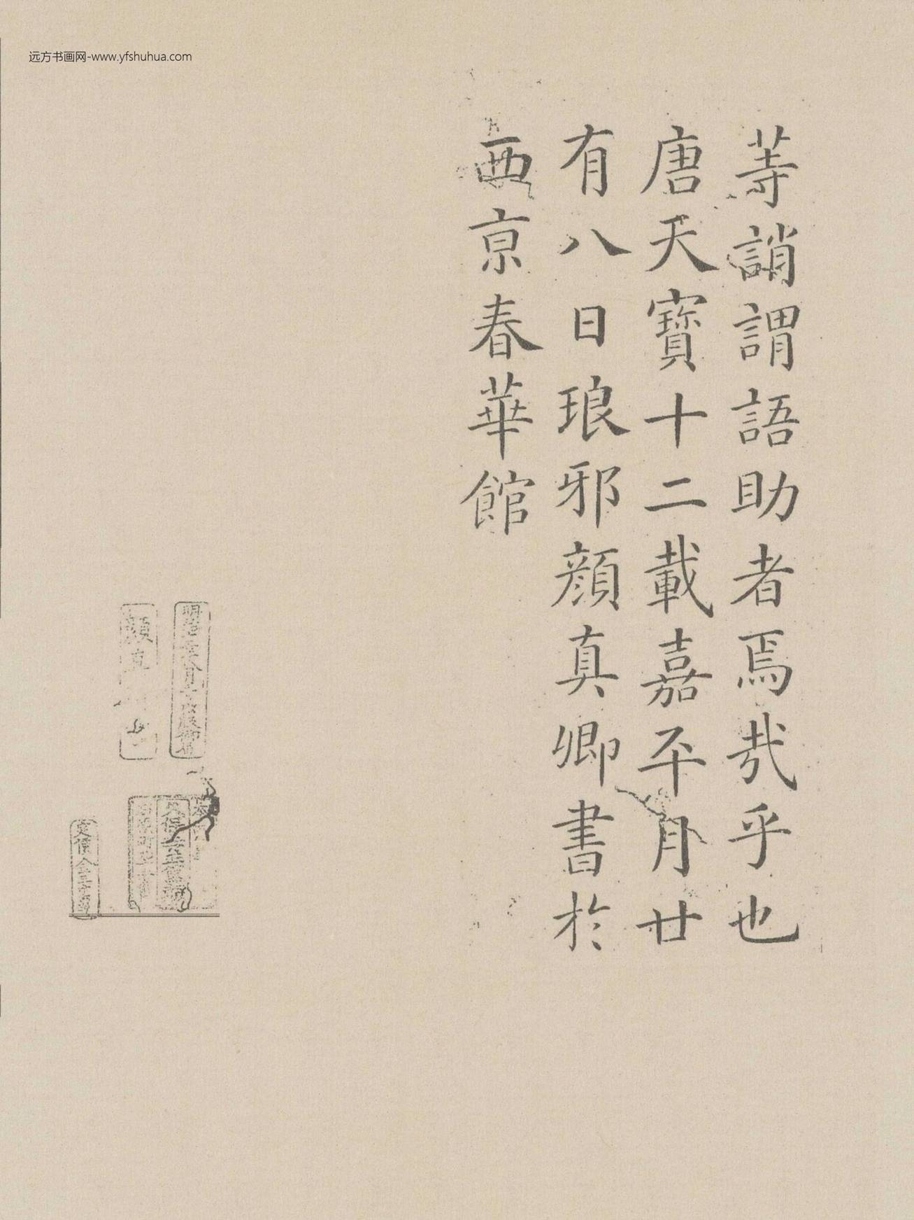 远方书画网-www.yfshuhua.com
等誚謂語助者焉㢤乎也
唐天寶十二載嘉平月廿
有八日琅邪顔真卿書於
西京春華館